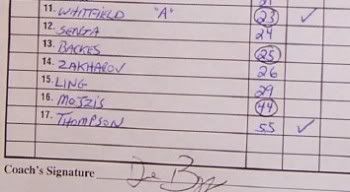 11. WHITFIELD "A" 23 ✓
12. SENGA 24
13. BACKES 25
14. ZAKHAROV 26
15. LING 29
16. MOJZIS 44
17. THOMPSON 55 ✓
Coach's Signature